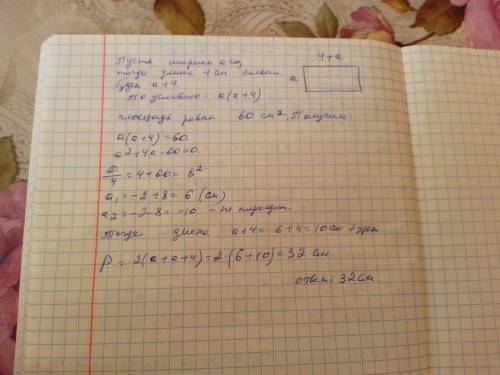 Пусть ширина а см,
4+a
тогда длина 4 см больше
a
будет a+4
По условию: a(a+4)
площадь равна 60 см², Получим:
a(a+4)=60.
a²+4a-60=0.
D/4=4+60=8²
a₁=-2+8=6 (см)
a₂=-2-8=-10 - не подходит.
Тогда длина a+4=6+4=10см будет.
P=2(a+a+4)=2·(6+10)=32 см.
ответ: 32см